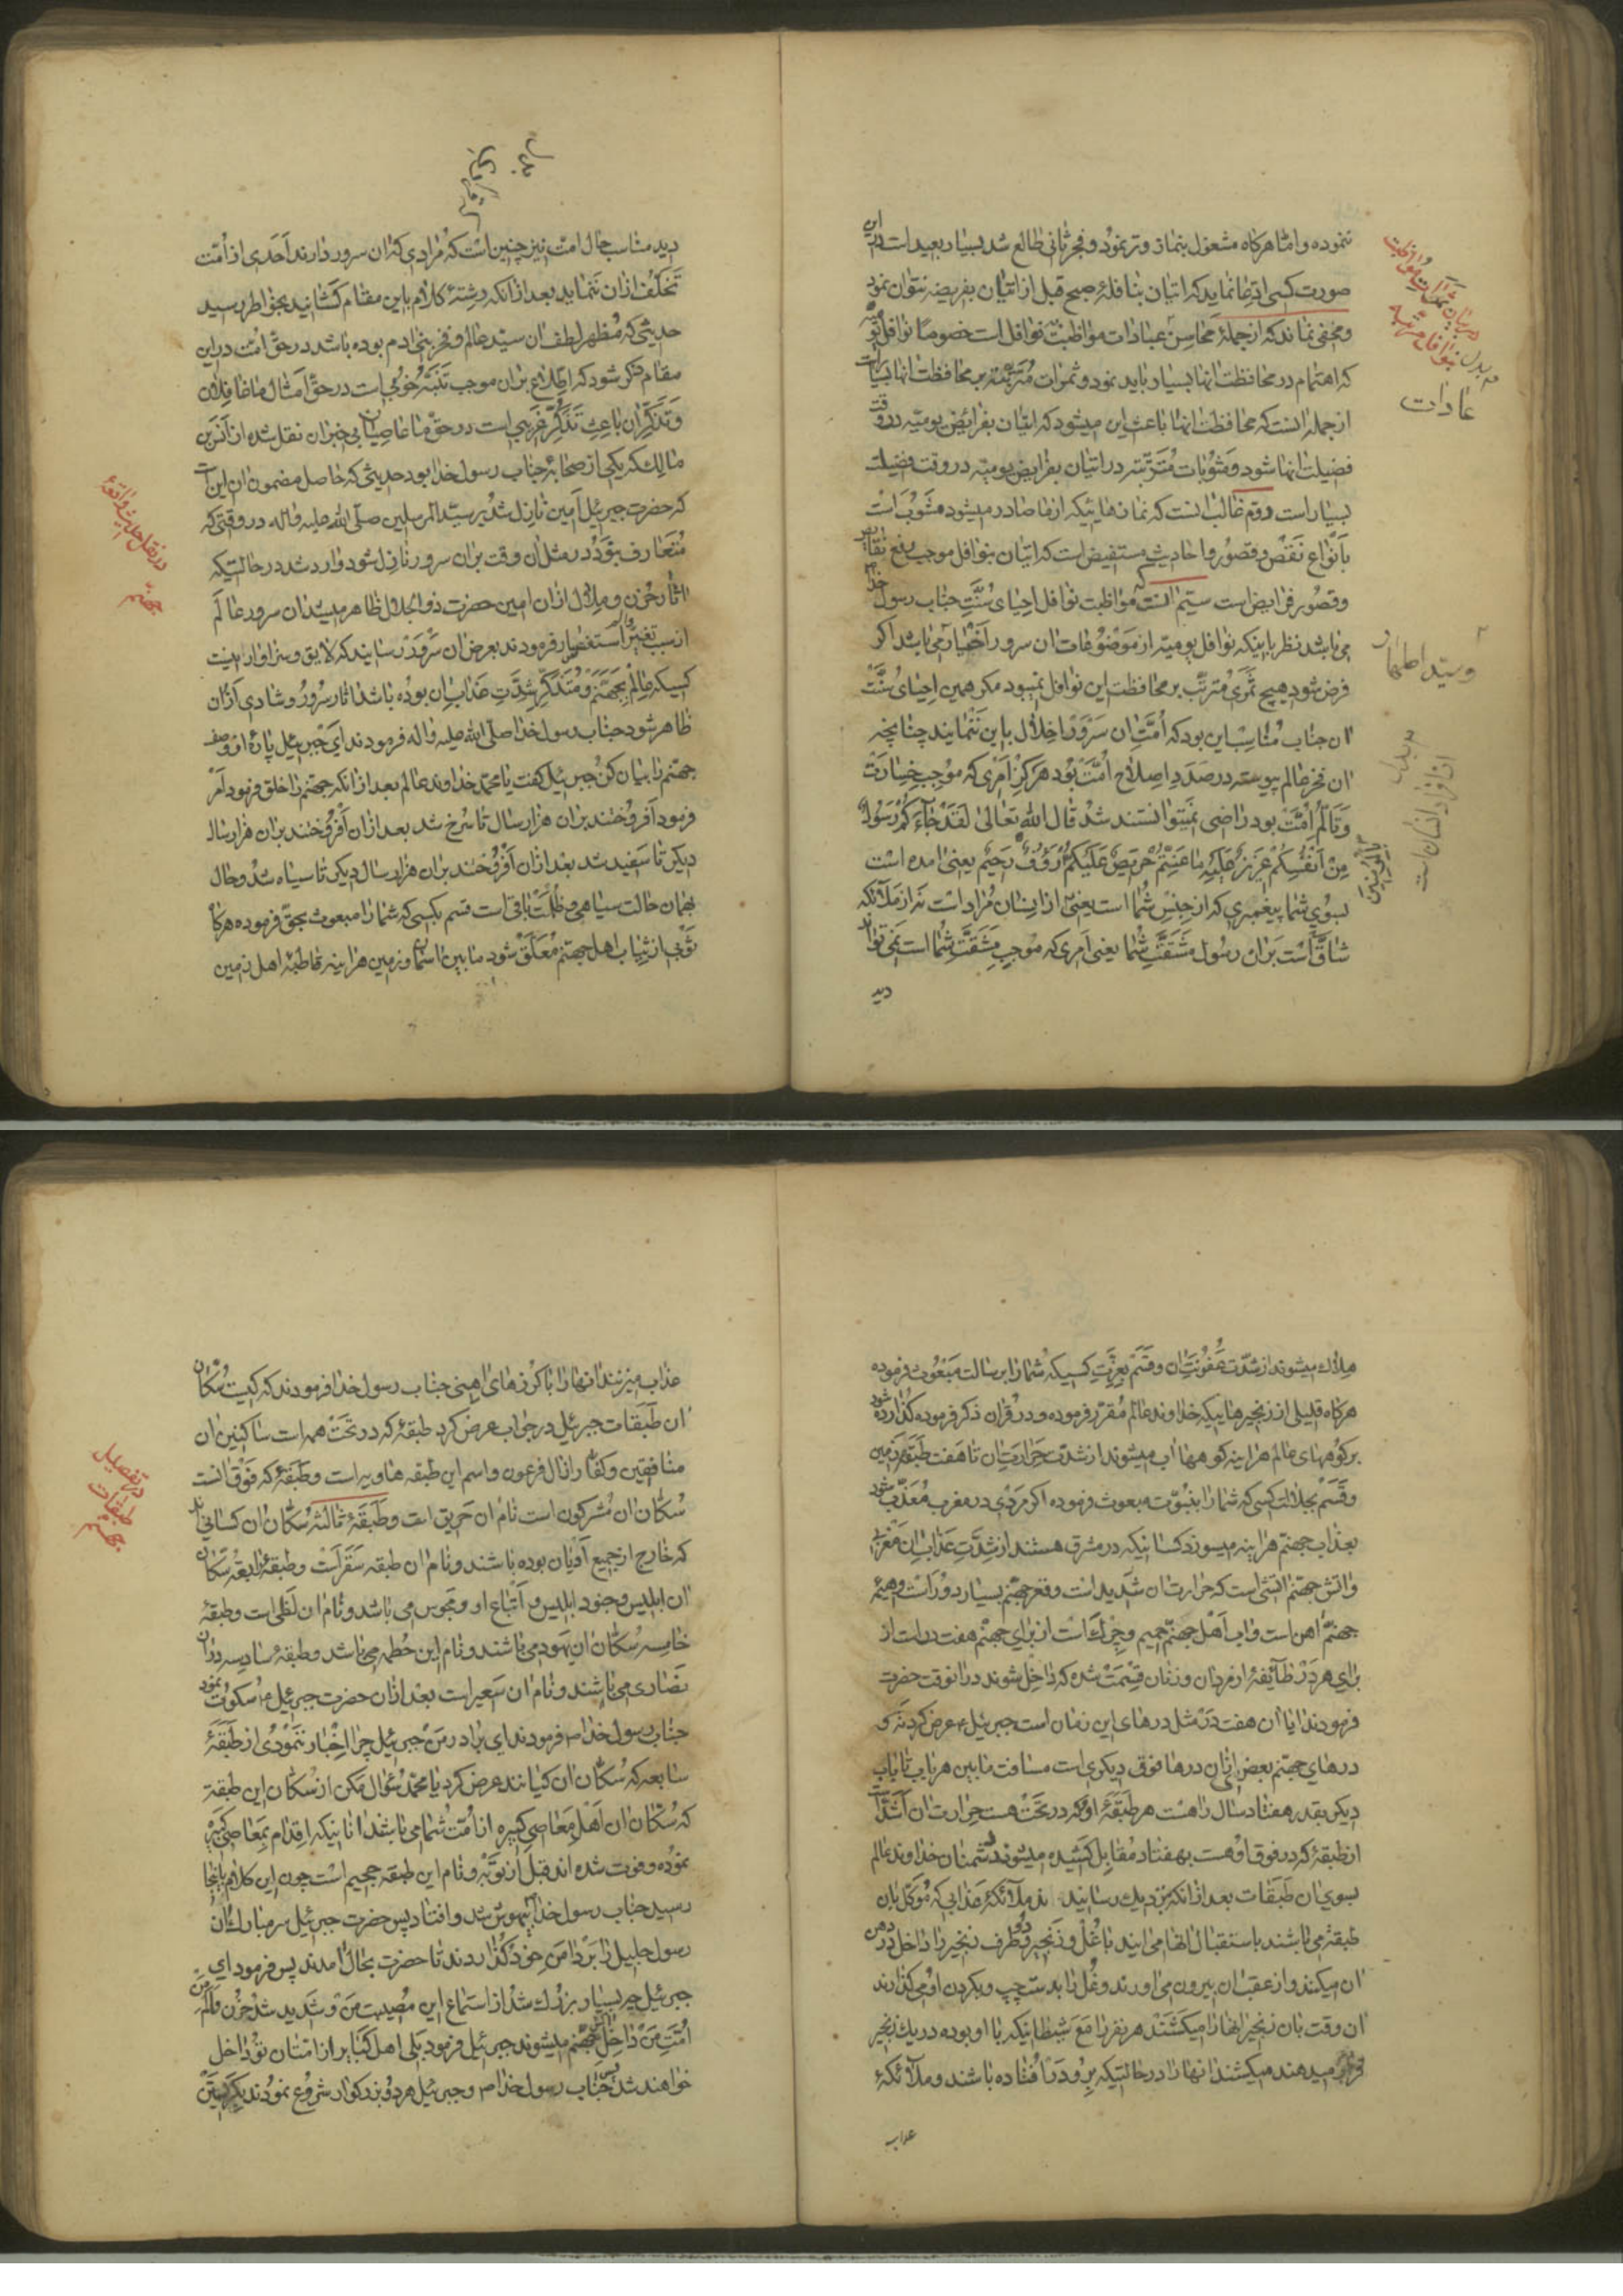 ننموده و امّا هرکاه مشغول بنماز وتر بنمود و فجر ثانی طالع شد بسیار بعید است در این
صورت کسی ادعا نماید که اتیان بنافلهٔ صبح قبل از اتیان بفریضه نتوان نمود
و مخفی نماند که از جملهٔ محاسن عبادات مواظبت نوافل است خصوصا نوافل یومیه
که اهتمام در محافظت انها بسیار باید نمود و ثمرات مترتبه بر محافظت انها بسیار است
از جمله انست که محافظت انها باعث این میشود که اتیان بفرائض یومیّه در وقت
فضیلت انها شود و مثوبات مترتبه در اتیان بفرایض یومیّه در وقت فضیلت
بسیار است دوّم غالب انست که نمازهائیکه از ما صادر میشود مشوب است
بانواع نقص و قصور و احادیث مستفیض است که اتیان بنوافل موجب رفع نقایص
و قصور فرایض است سیّم انست که مواظبت نوافل احیای سنّت جناب رسول خدا
می باشد نظر باینکه نوافل یومیّه از موضوعات ان سرور اخیار می باشد اگر
فرض شود هیچ ثمری مترتّب بر محافظت این نوافل نمیبود مکر همین احیای سنّت
ان جناب مناسب این بود که امّت ان سرور اخلال باین ننمایند چنانچه
ان فخر عالم پیوسته در صدد اصلاح امّت بود هرکز امری که موجب خسارت
و تألّم امّت بود راضی نمیتوانستند شد قال الله تعالی لقد جاءکم رسول
من انفسکم عزیز علیه ما عنتم حریص علیکم رؤف رحیم یعنی امده است
بسوی شما پیغمبری که از جنس شما است یعنی از انسان مراد است نه از ملائکه
شاق است بران رسول مشقت شما یعنی امری که موجب مشقت شما است نمی تواند
دید
در بیان ثمرات مواظبت
بنوافل مرتبه
مه بدل
عادات
و سید اطهار
مه بدل
از افراد انسان است
دید مناسب حال امت نیز چنین است که مرادی که ان سرور دارند احدی از امّت
تخلف ازان ننماید بعد از انکه رشتهٔ کلام باین مقام کشانید بخواطر رسید
حدیثی که مظهر لطف ان سیّد عالم و فخر بنی ادم بوده باشد در حقّ امت در این
مقام ذکر شود که اطلاع بران موجب تنبّه خوبی است در حقّ امثال ما غافلان
و تذکر ان باعث تذکر غریبی است در حقّ ما عاصیان بی خبران نقل شده از انس بن
مالک که یکی از صحابهٔ جناب رسول خدا بود حدیثی که حاصل مضمون ان این است
که حضرت جبرئیل امین نازل شد بر سیّد المرسلین صلّی الله علیه واله در وقتی که
متعارف نبود در مثل ان وقت بران سرور نازل شود وارد شد در حالتیکه
اثار حزن و ملال ازان امین حضرت ذو الجلال ظاهر میشد ان سرور عالم
از سبب تغیّر او استفسار فرمودند بعرض ان سرور رسانید که لایق و سزاوار نیست
کسیکه عالم بجهنم و متذکر شدّت عذاب ان بوده باشد اثار سرور و شادی ازان
ظاهر شود جناب رسول خدا صلّی الله علیه واله فرمودند ای جبرئیل پارهٔ از وصف
جهنم را بیان کن جبرئیل کفت یا محمّد خداوند عالم بعد از انکه جهنم را خلق فرمود امر
فرمود افروختند بران هزار سال تا سرخ شد بعد ازان افروختند بران هزار سال
دیکر تا سفید شد بعد ازان افروختند بران هزار سال دیکر تا سیاه شد و حال
بهمان حالت سیاهی و ظلمت باقی است قسم بکسی که شما را مبعوث بحقّ فرموده هرکاه
ثوبی از ثیاب اهل جهنم معلّق شود ما بین اسمان و زمین هراینه قاطبهٔ اهل زمین
در نقل حدیث واقعهٔ
جهنّم
هلاک میشوند از شدّت عفونت ان و قسم بعزّت کسیکه شما را برسالت مبعوث فرموده
هرکاه قلیلی از زنجیرهاییکه خداوند عالم مقرّر فرموده و در قران ذکر فرموده کذارده شود
بر کوههای عالم هراینه کوهها اب میشوند از شدّت حرارت ان تا هفت طبقهٔ زمین
و قسم بجلالت کسی که شما را بنبوّت مبعوث فرموده اکر مردی در مغرب معذّب شود
بعذاب جهنّم هراینه میسوزد کسانیکه در مشرق هستند از شدّت عذاب ان مغربی
و اتش جهنّم اتشی است که حرارت ان شدید است و قعر جهنّم بسیار دور است و هیمهٔ
جهنّم اهن است و اب اهل جهنّم حمیم و چرک است از برای جهنّم هفت در است از
برای هر در طایفهٔ از مردان و زنان قسمت شده که داخل شوند در انوقت حضرت
فرمودند ایا ان هفت در مثل درهای این زمان است جبرئیل عرض کرد نه و
درهای جهنّم بعض از ان درها فوق دیکری است مسافت ما بین هر باب تا باب
دیکر بقدر هفتاد سال راهست هر طبقهٔ او که در تحت هست حرارت ان اشدّ است
از طبقهٔ که در فوق او هست بهفتاد مقابل کشیده میشوند دشمنان خداوند عالم
بسوی ان طبقات بعد از انکه نزدیک رسانید ند ملائکهٔ عذابی که موکّل بان
طبقه می باشند باستقبال انها می ایند با غل و زنجیر دو طرف زنجیر را داخل در دهن
ان میکنند و از عقب ان بیرون می اورند و غل را بدست چپ و بکردن او می کذارند
ان وقت بان زنجیر انها را میکشند هر نفر را مع شیطانیکه با او بوده در یک زنجیر
قرار میدهند میکشند انها را در حالتیکه برو در افتاده باشند و ملائکهٔ
عذاب
عذاب میزنند انها را با کرزهای اهنی جناب رسول خدا فرمودند که کیست سکّان
ان طبقات جبرئیل در جواب عرض کرد طبقهٔ که در تحت همه است ساکنین ان
منافقین و کفّار از ال فرعون و اسم این طبقه هاویه است و طبقهٔ که فوق انست
سکّان ان مشرکون است نام ان حریق است و طبقهٔ ثالثه سکّان ان کسانی اند
که خارج از جمیع ادیان بوده باشند و نام ان طبقه سقر است و طبقهٔ رابعه سکّان
ان ابلیس و جنود ابلیس و اتباع او و مجوس می باشد و نام ان لظی است و طبقهٔ
خامسه سکّان ان یهود می باشند و نام این حطمه می باشد و طبقهٔ سادسه دران
نصاری می باشند و نام ان سعیر است بعد ازان حضرت جبرئیل سکوت نمود
جناب رسول خدا فرمودند ای برادر من جبرئیل چرا اخبار ننمودی از طبقهٔ
سابعه که سکّان ان کیانند عرض کرد یا محمّد سئوال مکن از سکّان این طبقه
که سکّان ان اهل معاصی کبیره از امّت شما می باشند انانیکه اقدام بمعاصی کبیره
نموده و فوت شده اند قبل از توبه و نام این طبقه جحیم است چون این کلام باینجا
رسید جناب رسول خدا بیهوش شد و افتاد پس حضرت جبرئیل سر مبارک ان
رسول جلیل را بر دامن خود کذاردند تا حضرت بحال امدند پس فرمود ای
جبرئیل چه بسیار بزرک شد از استماع این مصیبت من و شدید شد حزن و الم من
امّت من داخل جهنم میشوند جبرئیل فرمود بلی اهل کبایر از امّتان تو داخل
خواهند شد پس جناب رسول خدا و جبرئیل هر دو بزرکوار شروع نمودند بکریستن
در تفصیل
طبقات
جهنم